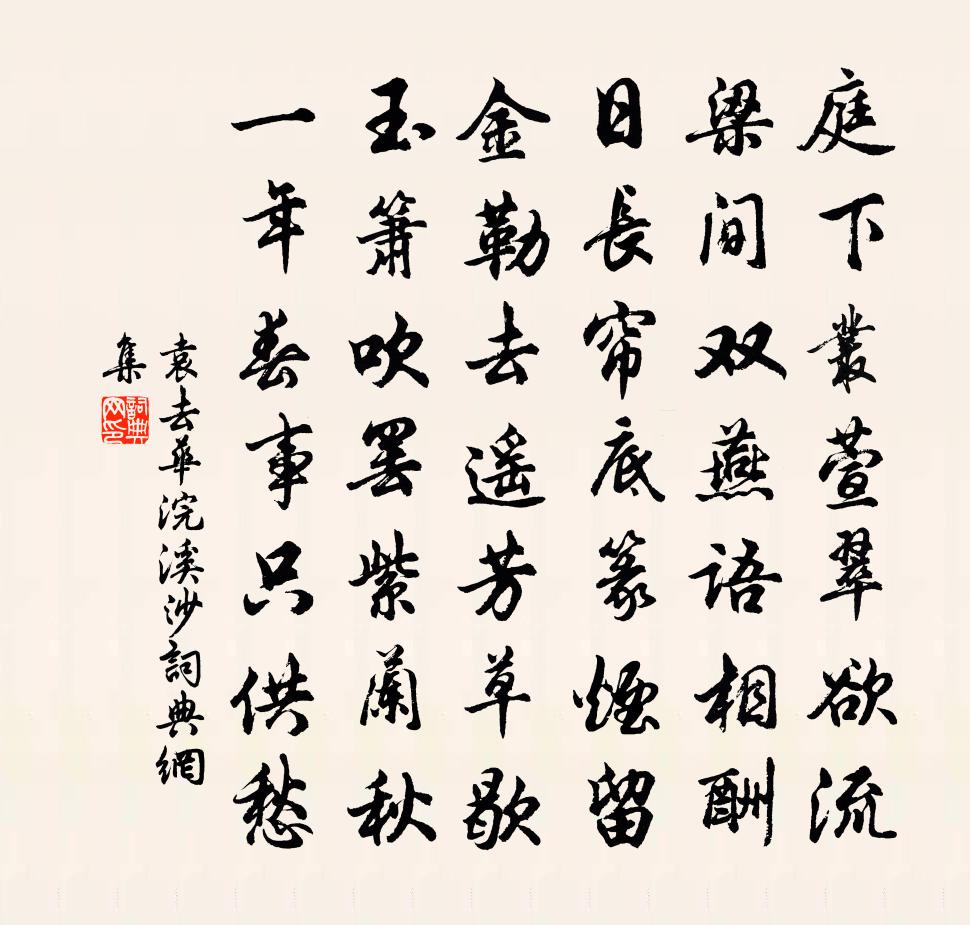 庭下叢萱翠欲流
梁间双燕語相酬
日長帘底篆煙留
金勒去遥芳草歇
玉箫吹罢紫蘭秋
一年春事只供愁
袁去華浣溪沙詞典網
集
詞典
网印